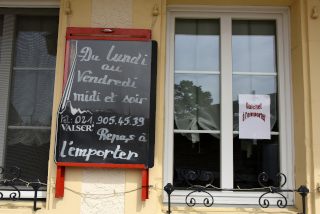 Du lundi
au
Vendredi
midi et soir
Tél: 021.905.45.39
VALSER
Repas à
l'emporter
à l'emporter